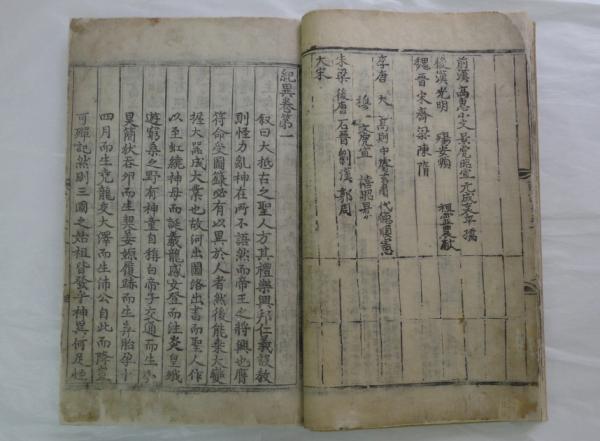 前漢 高惠小文景虎昭宣元成哀平孺
後漢光明 殤安順 桓靈農獻
魏晉宋齊梁陳隋
李唐 太 高則中睿玄肅代德順憲
穆 文虎宣 僖昭景
朱梁 後唐 石晉 劉漢 郭周
大宋
紀異卷第一
叙曰大抵古之聖人方其禮樂興邦仁義設教
則怪力亂神在所不語然而帝王之將興也膺
符命受圖籙必有以異於人者然後能乘大變
握大器成大業也故河出圖洛出書而聖人作
以至虹繞神母而誕羲龍感女登而注炎皇娥
遊窮桑之野有神童自稱白帝子交通而生小
昊簡狄吞卵而生契姜嫄履跡而生弃胎孕十
四月而生堯龍交大澤而生沛公自此而降豈
可殫記然則三國之始祖皆發乎神異何足怪